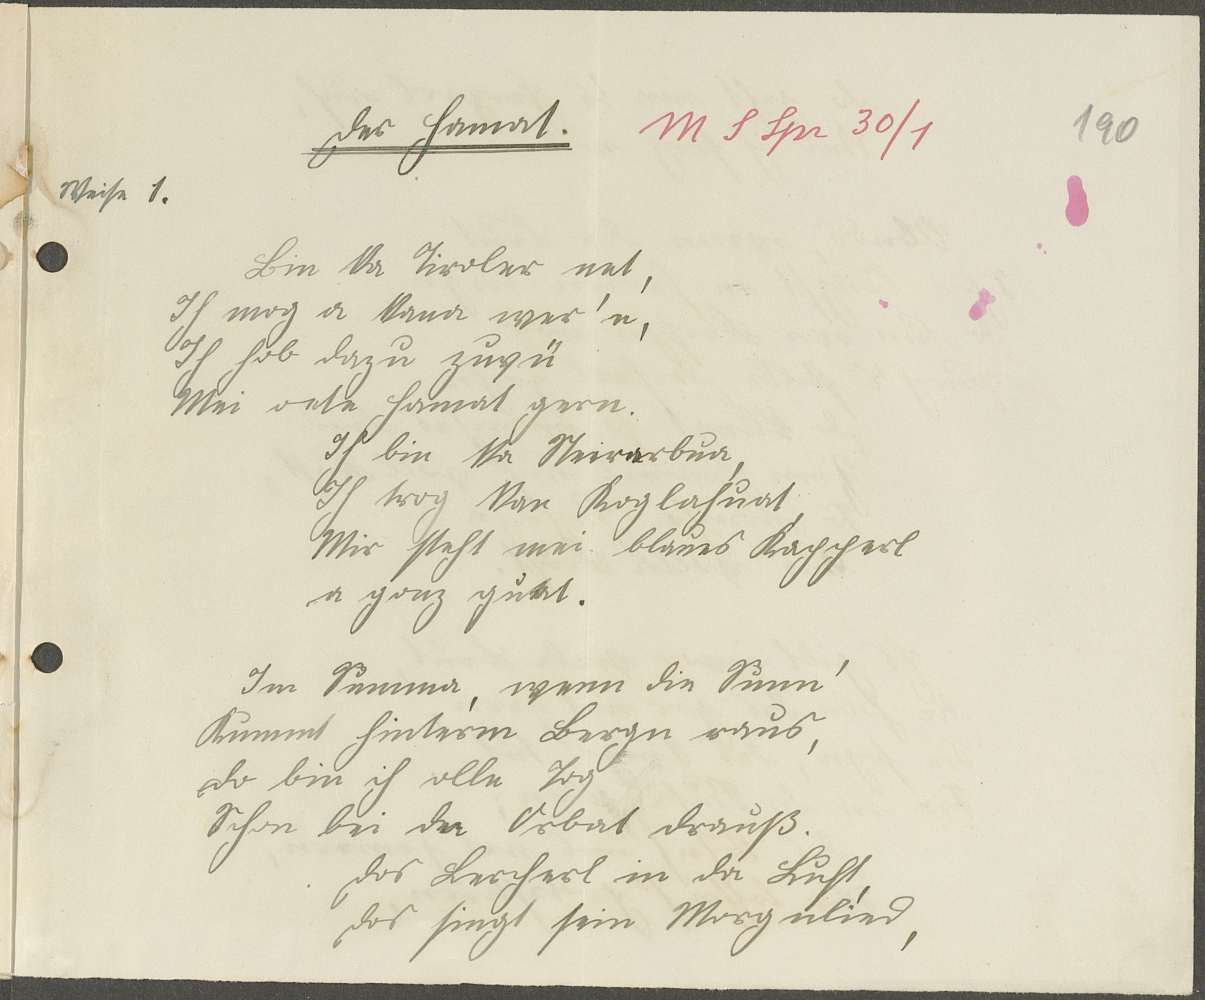 Der Hamat. M S Spr 30/1 190
Weise 1.
Bin ka Tiroler net,
Ich mog a kana wer'n,
Ich hob dazu zuvü
Mei oete Hamat gern.
Ich bin ka Steirarbua,
Ich trog kan Koglahuat,
Mir steht mei blaues Kapperl
a gonz guat.
Im Summa, wenn die Sunn'
Kummt hinterm Bergn raus,
Do bin ich olle Tog
Schon bei der Orbat drauß.
Das Lercherl in da Luft,
Das singt sein Morgnlied,